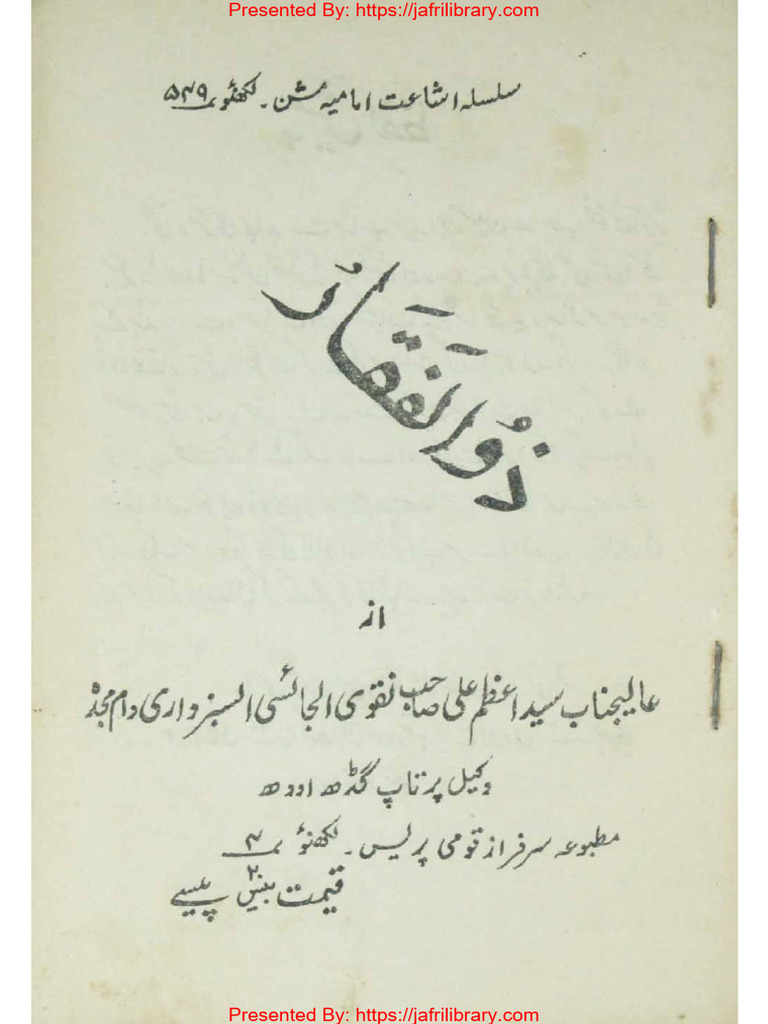 Presented By: https://jafrilibrary.com
سلسلہ اشاعت امامیہ مشن ۔ لکھنؤ ۵۴۹
ذُوالفَقَارُ
از
عالیجناب سید اعظم علی صاحب نقوی الجائسی السبزواری دام مجدہٗ
وکیل پرتاپ گڈھ اودھ
مطبوعہ سرفراز قومی پریس ۔ لکھنؤ ۳
قیمت بیس ۲۰ پیسے
Presented By: https://jafrilibrary.com